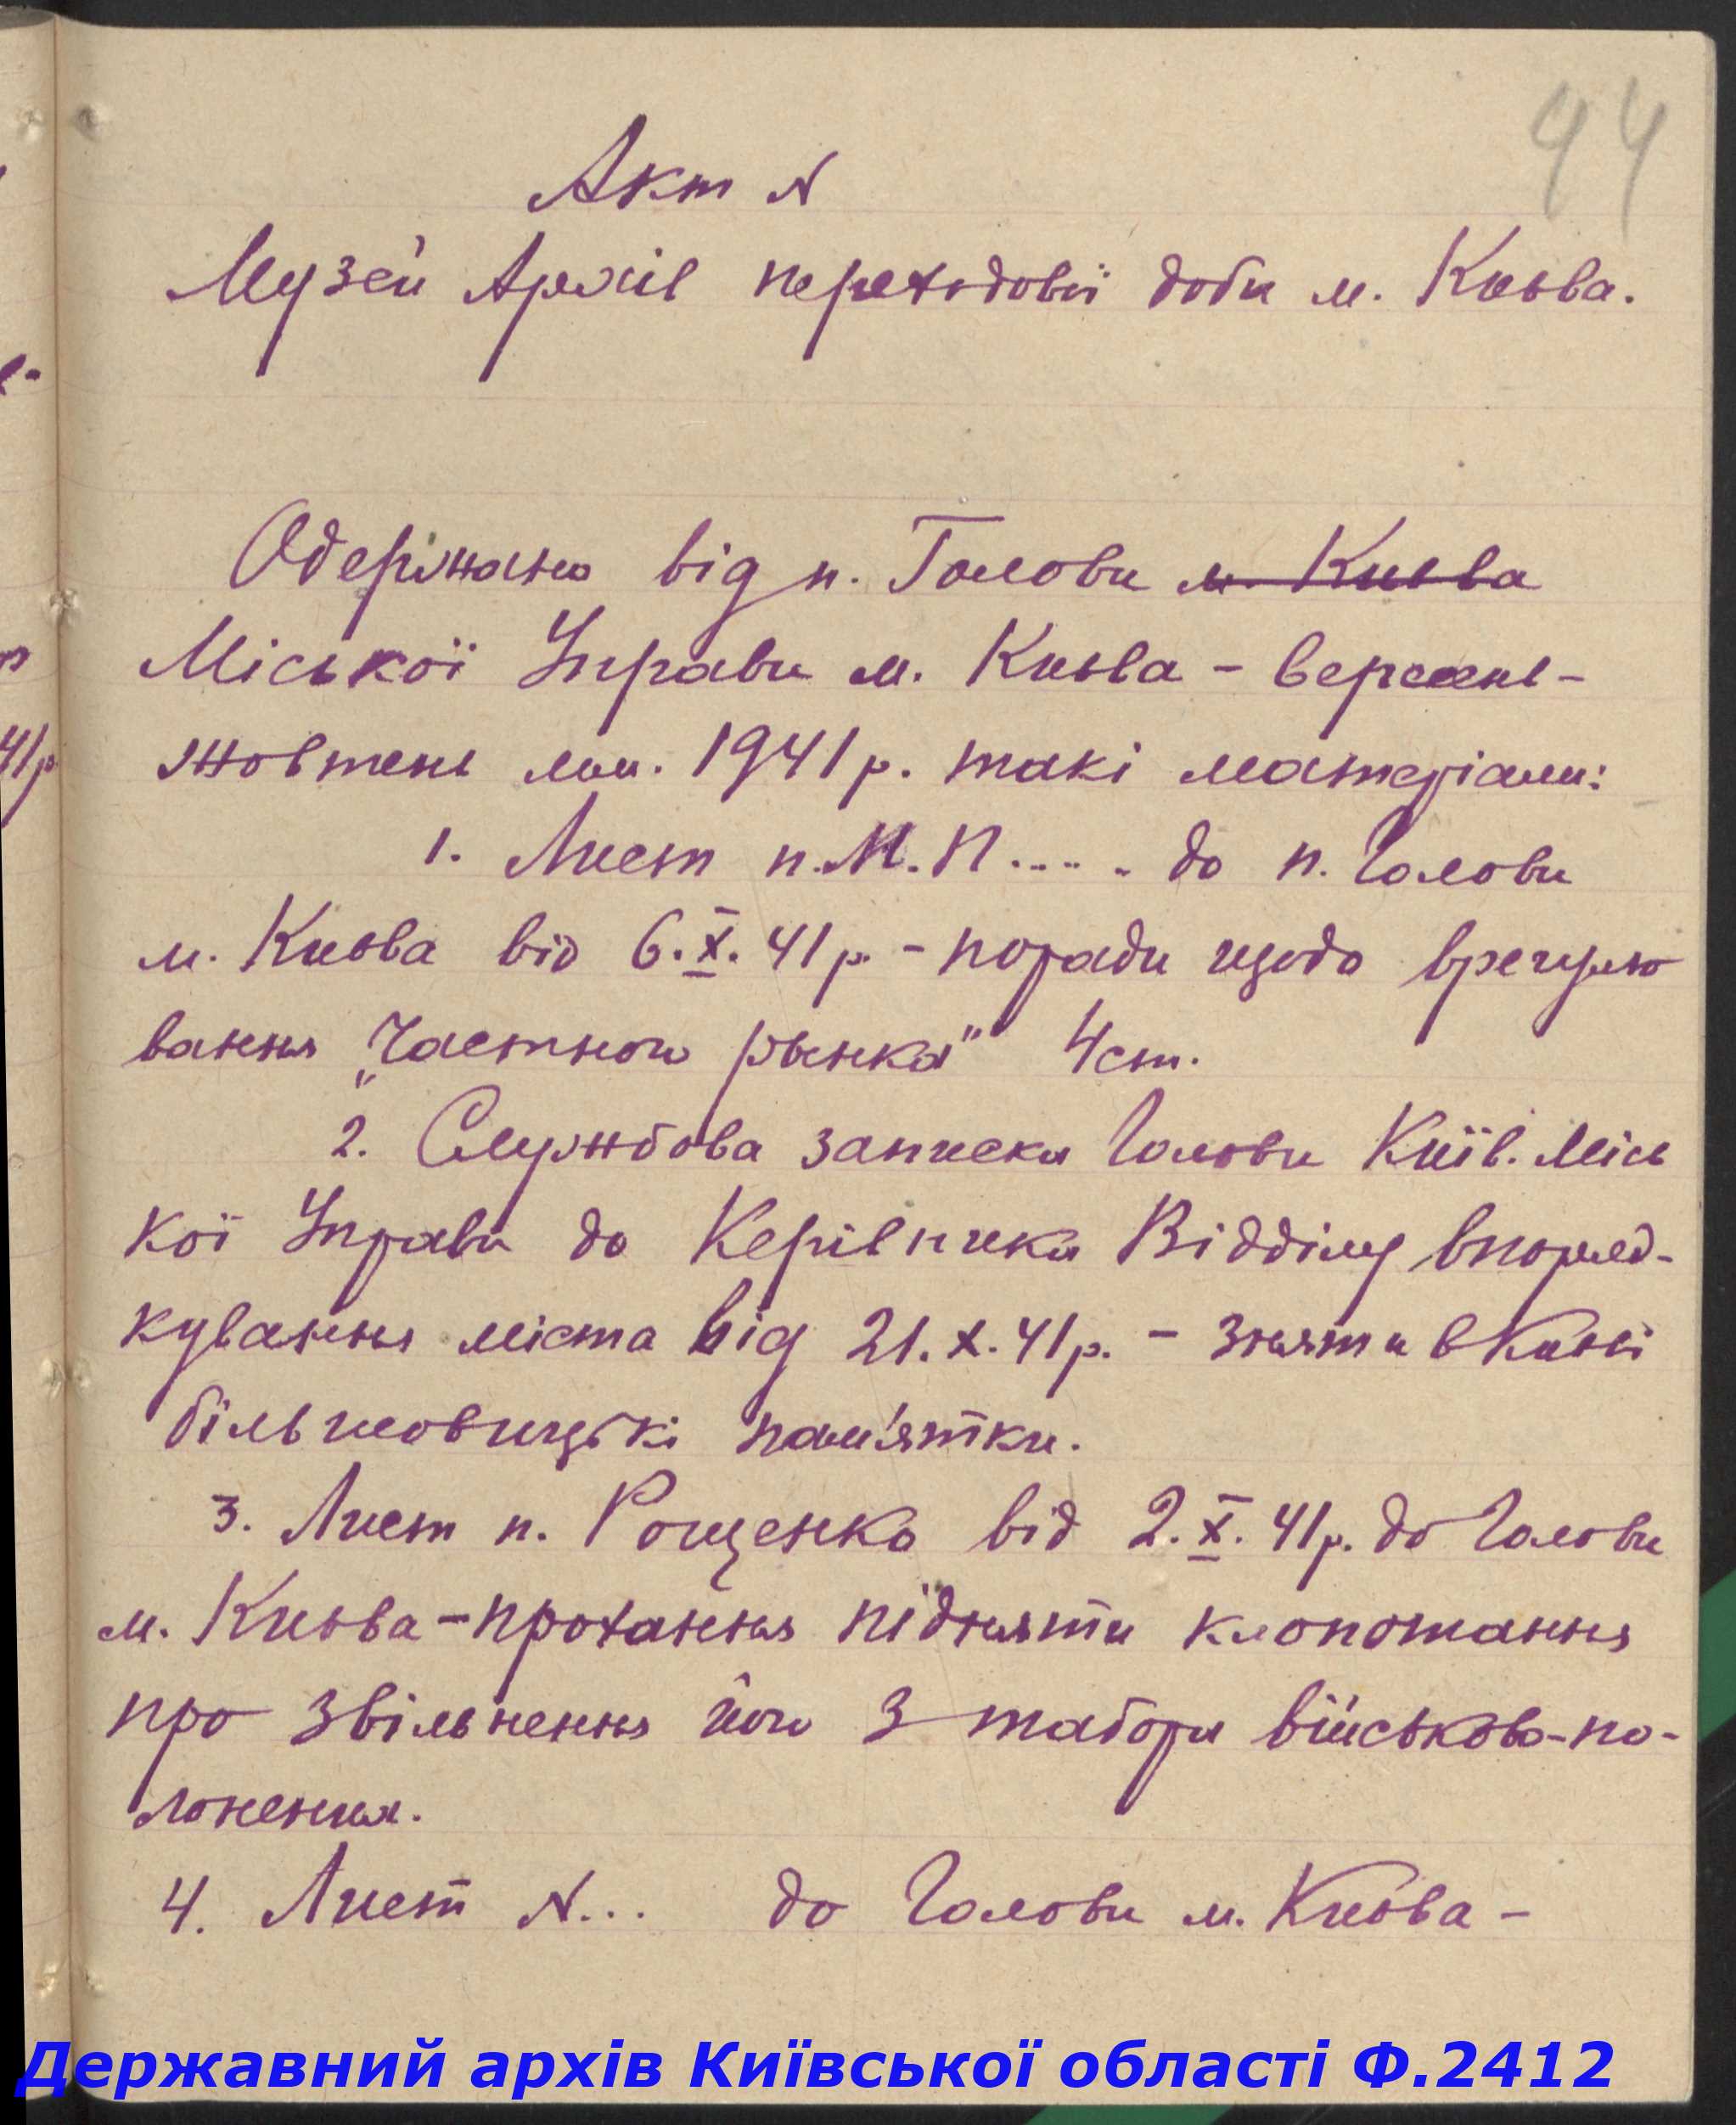 44
Акт №
Музей Архів переходової доби м. Києва.
Одержано від п. Голови м. Києва
Міської Управи м. Києва – вересень-
жовтень 1941 р. такі матеріали:
1. Лист п. М. П..... до п. Голови
м. Києва від 6.X.41 р. – поради щодо врегулю
вання „Частного рынка" 4 ст.
2. Службова записка Голови Київ. Місь
кої Управи до Керівника Відділу впоряд-
кування міста від 21.X.41 р. – зняти в Києві
більшовицькі пам'ятки.
3. Лист п. Рощенко від 2.X.41 р. до Голови
м. Києва – прохання підняти клопотання
про звільнення його з табору військово-по-
лонення.
4. Лист N... до Голови м. Києва –
41р
Державний архів Київської області Ф.2412